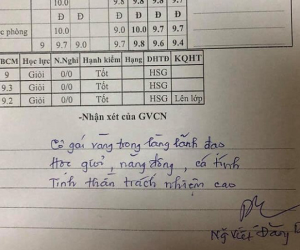 10.0 9.8 9.8 9.7
Đ Đ Đ
10.0 Đ Đ Đ
phòng 9.0 10.0 9.7 9.7
9 9.7 9.0 9.7 9.8 9.6 9.4
BCM Học lực N.Nghỉ Hạnh kiểm Hạng DHTĐ KQHT
9 Giỏi 0/0 Tốt HSG
9.3 Giỏi 0/0 Tốt HSG
9.2 Giỏi 0/0 Tốt HSG Lên lớp
-Nhận xét của GVCN
Cô gái vàng trong làng lãnh đạo
Học giỏi, năng động, cá tính
Tinh thần trách nhiệm cao
Ng Viết Đăng